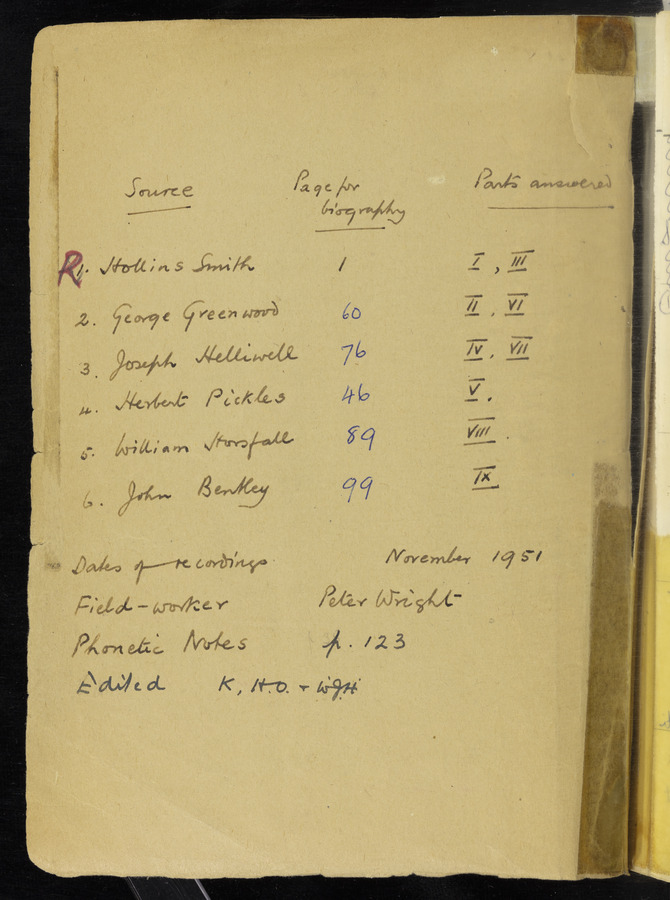 Source Page for Parts answered
biography
R 1. Hollins Smith 1 I, III
2. George Greenwood 60 II, VI
3. Joseph Helliwell 76 IV, VII
4. Herbert Pickles 46 V.
5. William Horsfall 89 VIII.
6. John Bentley 99 IX
Dates of recordings November 1951
Field-worker Peter Wright
Phonetic Notes p. 123
Edited K, H.O. + WJH